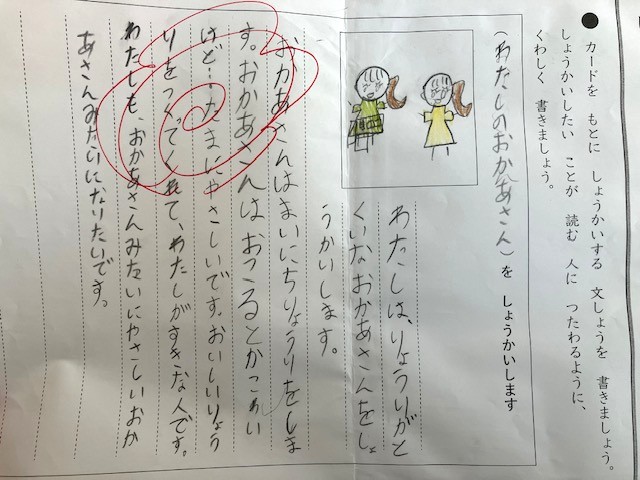 ●カードを もとに しょうかいする 文しょうを 書きましょう。
しょうかいしたい ことが 読む 人に つたわるように、
くわしく 書きましょう。
(わたしのおかあさん)を しょうかいします
わたしは、りょうりがと
くいなおかあさんをしょ
うかいします。
おかあさんはまいにちりょうりをしま
す。おかあさんはおこるとかこわい
けど…たまにやさしいです。おいしいりょう
りをつくってくれて、わたしがすきな人です。
わたしも、おかあさんみたいにやさしいおか
あさんみたいになりたいです。